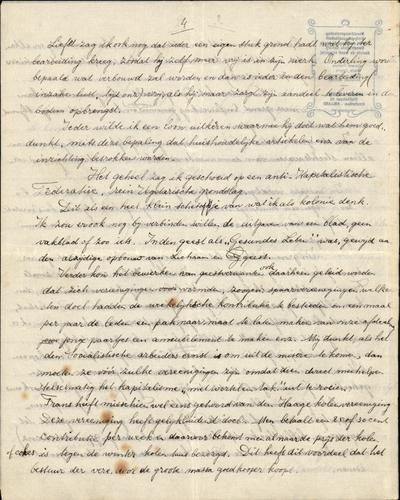 4
Liefst zag ik ook nog dat ieder een eigen stuk grond had wat hij ter
bearbeiding kreeg, zoodat hij zelf meer vrij is in zijn werk. Onderling word
bepaald wat verbouwd zal worden en dan is ieder in den bearbeiding
inzake lust, tijd enz. vrij, als hij maar zorgt zijn aandeel te leveren in de
bodem opbrengst.
Ieder wilde ik een loon uitkeren waarmee hij doet wat hem goed
dunkt, mits deze bepaling dat huishoudelijke artikelen enz. van de
inrichting betrokken worden.
Het geheel zag ik geschoeid op een anti-Kapitalistische
Federatie, rein grondslag.
Dit als een heel klein schetsje van wat ik als kolonie denk.
Ik zou er ook nog bij verbinden willen de uitgeven van een blad, geen
vakblad of zoo iets. In den geest als "Gesundes Leben" was, gewijd aan den
alzijdige opbouw van Lichaam en Geest.
Verder kon het bewerken van geestverwanten ook daarheen geleid worden
dat zich vereenigingen vormden, zoogen. spaarvereenigingen, welke
ten doel hadden de wekelijksche kontributie te besteden om eenmaal
per jaar de leden een pak naar maat te laten maken van onze
voor jonge paartjes een ameublement te maken enz. Mij dunkt als het
den Socialistische arbeiders ernst is om uit de misère te komen, dan
moeten ze vóór zulke vereenigingen zijn omdat dien direct mithelpen
stelselmatig het kapitalisme, "met wortel en tak" uit te roeien.
Frans heeft misschien wel eens gehoord van den Haagse kolenvereeniging
Deze vereeniging heeft gelijkluidend doel. Men betaalt en 25 of 50 cent
contributie per week en daarvoor bekomt men al naar de prijs der kolen
of cokes is tegen de winter kolen thuisbezorgd. Dit heeft dit voordeel dat het
bestuur der vere. door de groote massa goedkooper koopt.